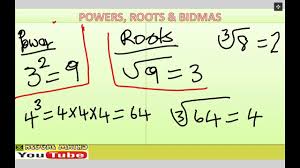 POWERS, ROOTS & BIDMAS
Power
3² = 9
Roots
√9 = 3
³√8 = 2
4³ = 4×4×4 = 64
³√64 = 4
YouTube